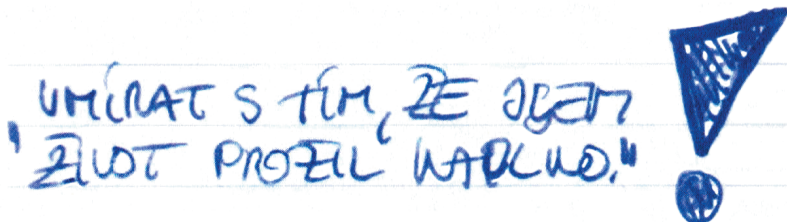 "UMÍRAT S TÍM, ŽE JSEM
ŽIVOT PROŽIL NAPLNO." !